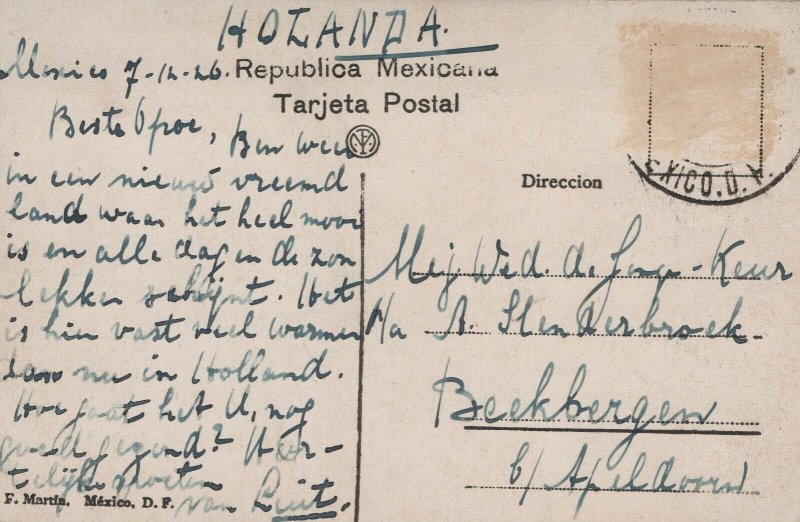 HOLANDA.
Mexico 7-12-26.
Republica Mexicana
Tarjeta Postal
Beste Opoe, Ben weer
in een nieuw vreemd
land waar het heel mooi
is en alle dagen de zon
lekker schijnt. Het
is hier vast veel warmer
dan nu in Holland.
Hoe gaat het U, nog
goed gezond? Har-
telijke groeten
van
F. Martin. México, D. F.
EXICO. D. F.
Direccion
Mej Wed. de Jong-Keur
p/a A. Slenderbroek.
Beekbergen
b/ Apeldoorn